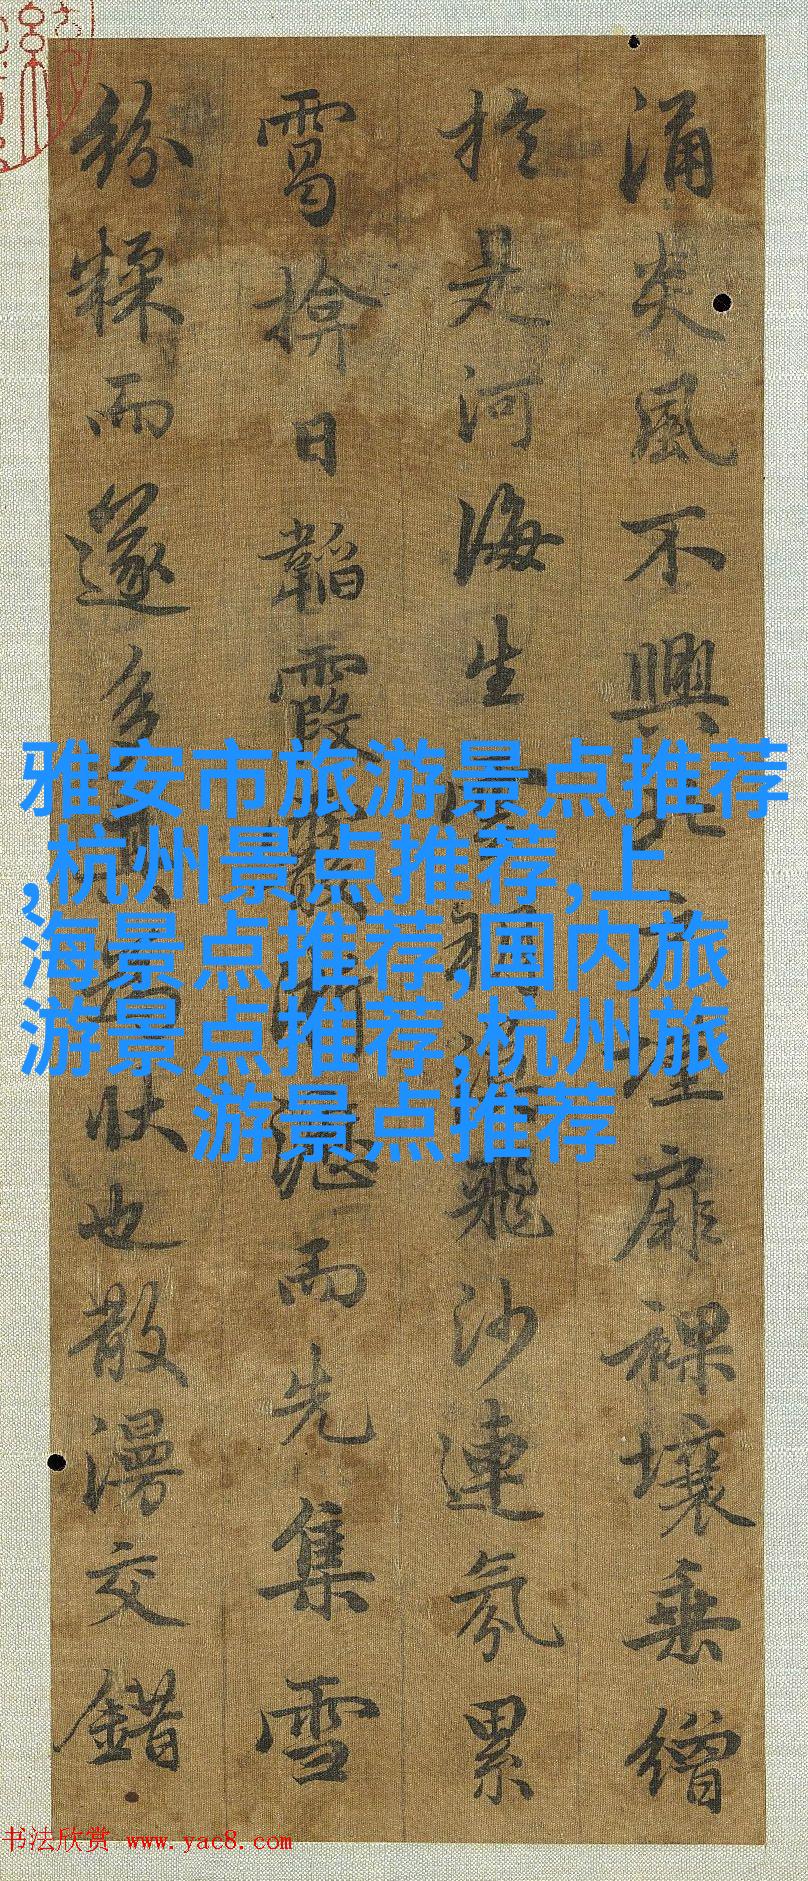 涌炎風不興北户墐扉裸壤垂繒
於是河海生雲朔漠飛沙連氛累
靄揜日韜霞霰淅瀝而先集雪
紛糅而遂多其為狀也散漫交錯
雅安市旅游景点推荐
,杭州景点推荐,上
海景点推荐,国内旅
游景点推荐,杭州旅
游景点推荐
书法欣赏 www.yac8.com